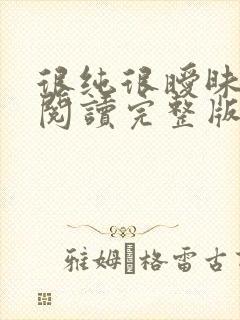 很纯很曖昧
閱讀完整版
雅姆 格雷古